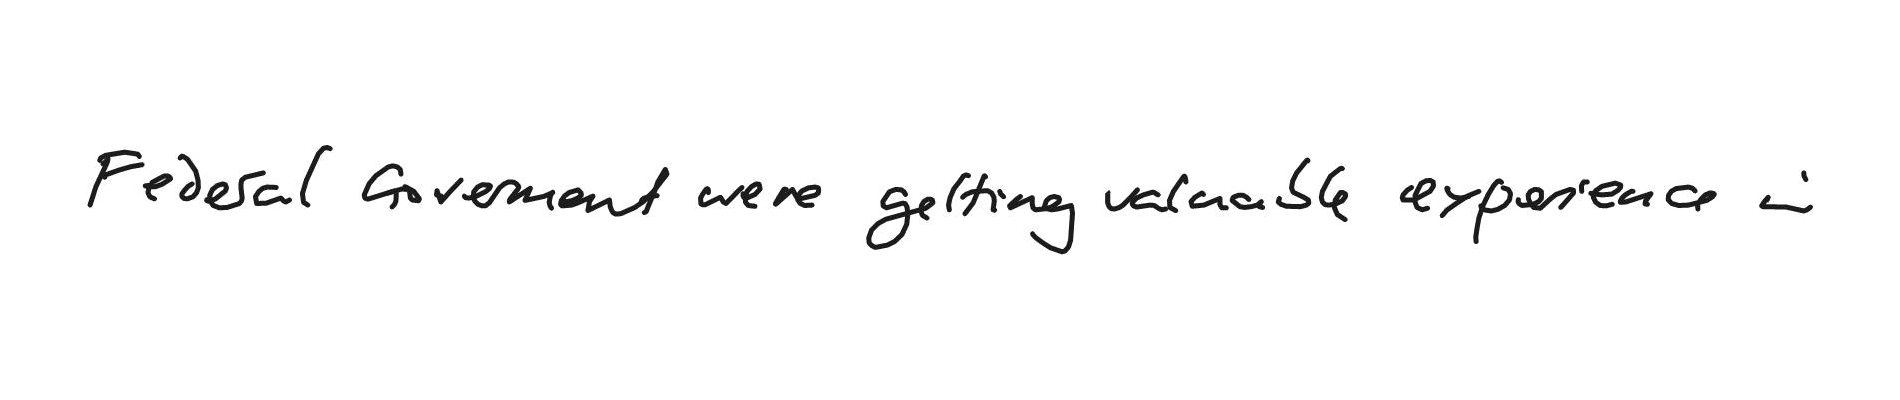 Federal Government were getting valuable experience in